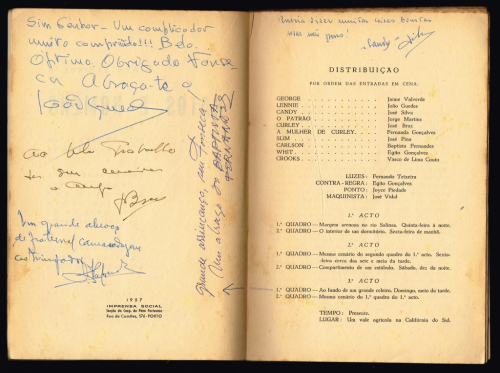 Sim Senhor - Um complicador
muito comprido!!! Belo.
Optimo. Obrigado Fonse-
ca Abraço-te o
João Guedes
Ao belo trabalho
J Braz
Um grande abraço
de fraternal camaradagem
Um abraço do BAPTISTA
FERNANDES
1957
IMPRENSA SOCIAL
Secção da Coop. do Povo Portuense
Rua de Camões, 578 - PORTO
Queria dizer muitas coisas bonitas
mas não posso!
"Candy"
DISTRIBUIÇÃO
POR ORDEM DAS ENTRADAS EM CENA:
GEORGE . . . . . . . . . Jaime Valverde
LENNIE . . . . . . . . . João Guedes
CANDY . . . . . . . . . José Silva
O PATRÃO . . . . . . . . . Jorge Martins
CURLEY . . . . . . . . . José Braz
A MULHER DE CURLEY . . . . . . . . . Fernanda Gonçalves
SLIM . . . . . . . . . José Pina
CARLSON . . . . . . . . . Baptista Fernandes
WHIT . . . . . . . . . Egito Gonçalves
CROOKS . . . . . . . . . Vasco de Lima Couto
LUZES: Fernando Teixeira
CONTRA-REGRA: Egito Gonçalves
PONTO: Joyce Piedade
MAQUINISTA: José Vidal
1.º ACTO
1.º QUADRO — Margens arenosas no rio Salinas. Quinta-feira à noite.
2.º QUADRO — O interior de um dormitório. Sexta-feira de manhã.
2.º ACTO
1.º QUADRO — Mesmo cenário do segundo quadro do 1.º acto. Sexta-
feira cerca das sete e meia da tarde.
2.º QUADRO — Compartimento de um estábulo. Sábado, dez da noite.
3.º ACTO
1.º QUADRO — Ao fundo de um grande celeiro. Domingo, meio da tarde.
2.º QUADRO — Mesmo cenário do 1.º quadro do 1.º acto.
TEMPO: Presente.
LUGAR: Um vale agrícola na Califórnia do Sul.